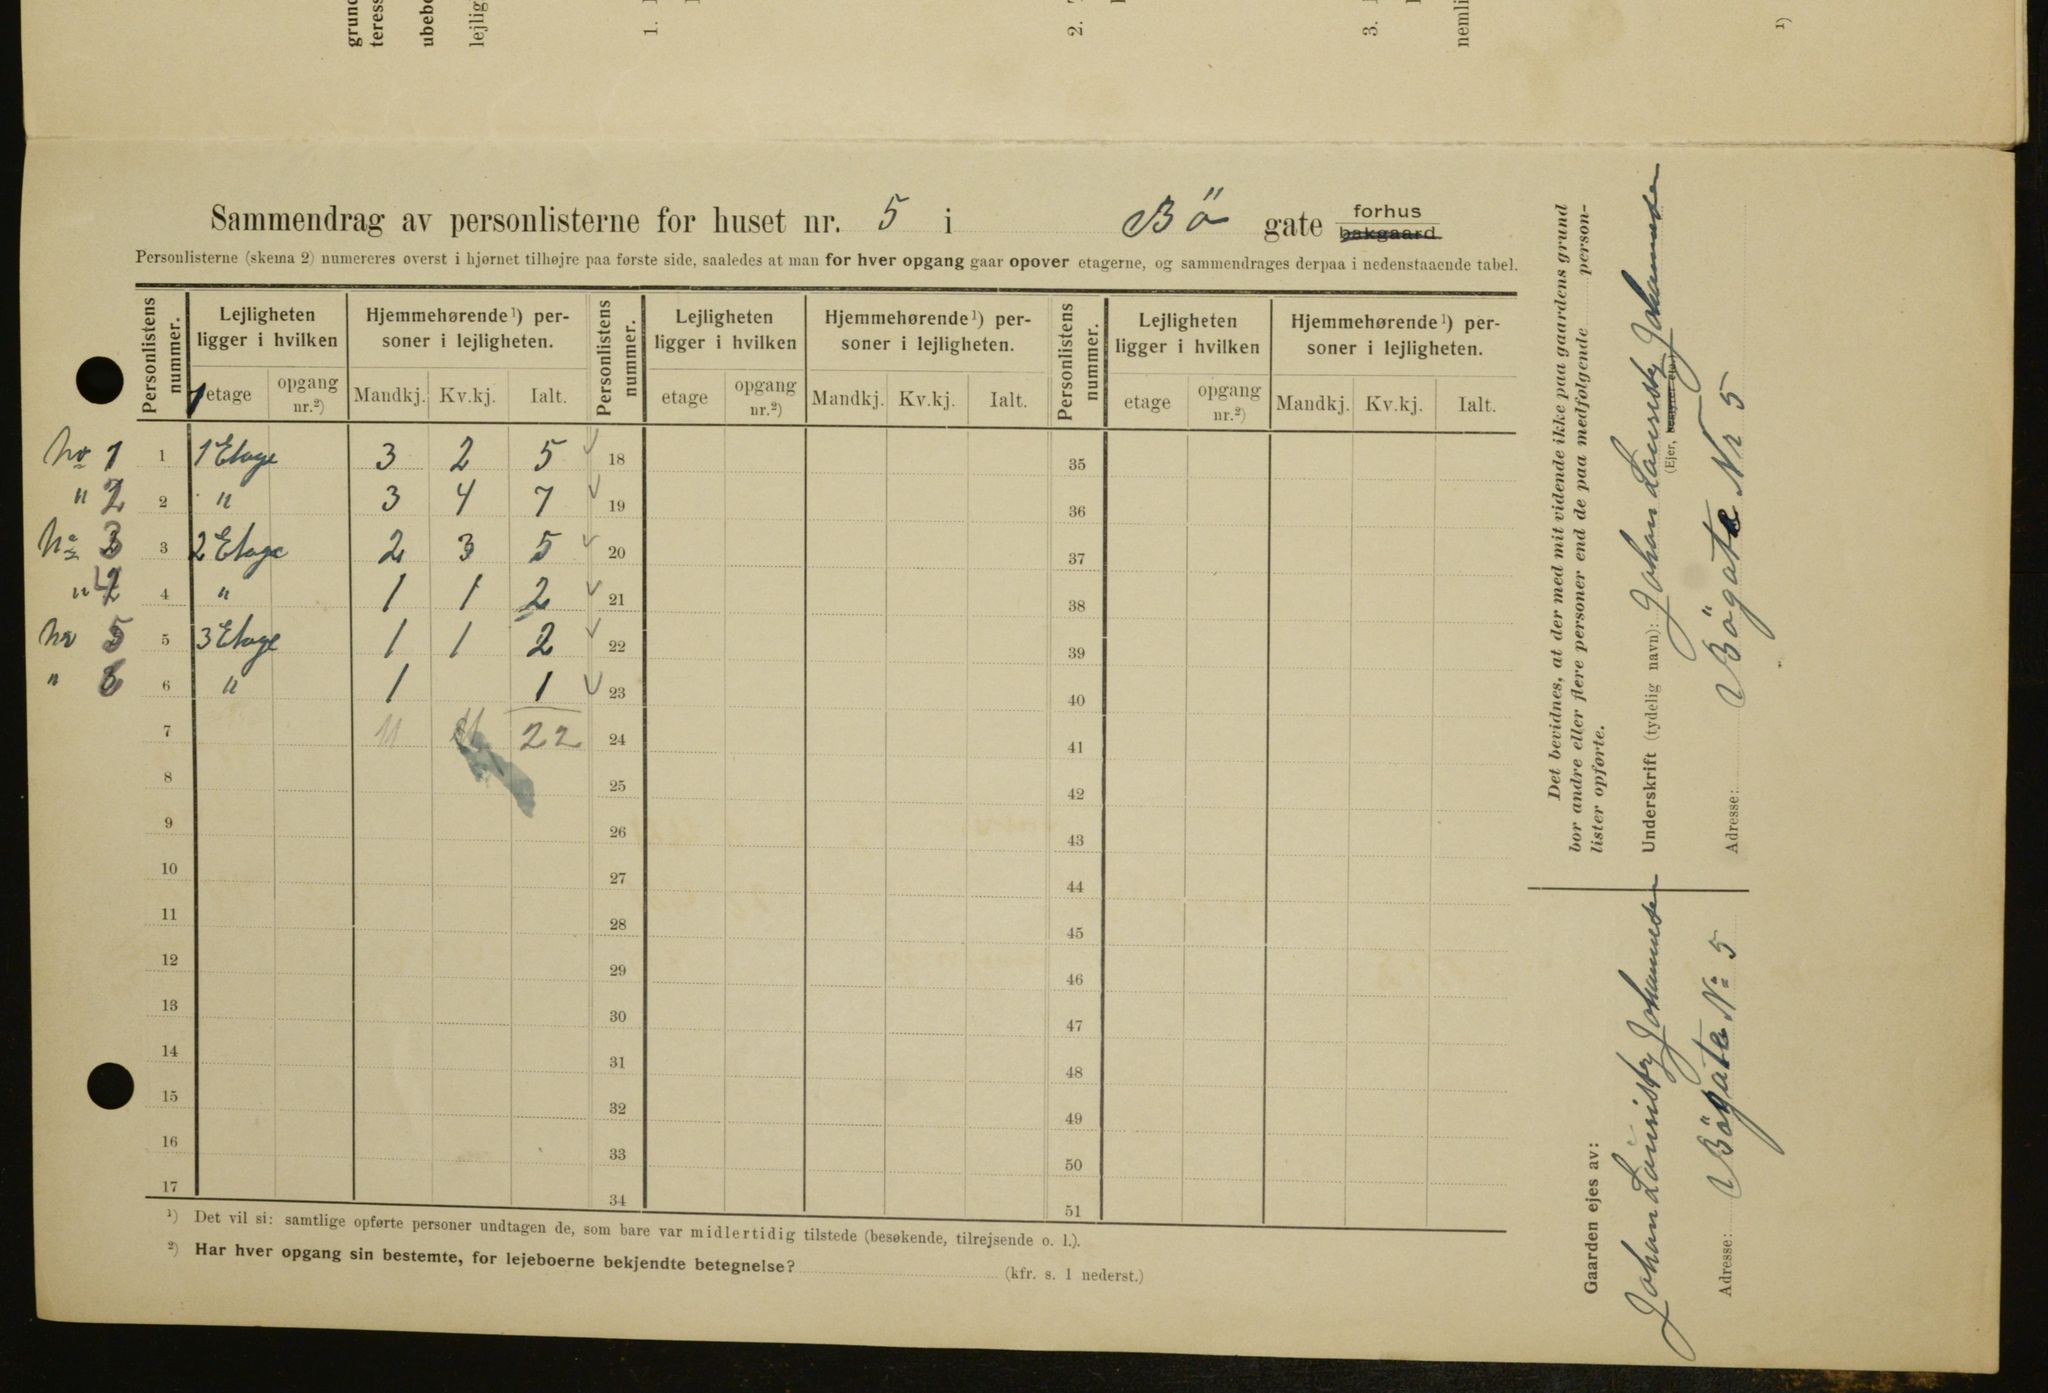 Sammendrag av personlisterne for huset nr. 5 i Bö gate forhus bakgaard
Personlisterne (skema 2) numereres øverst i hjørnet tilhøjre paa første side, saaledes at man for hver opgang gaar opover etagerne, og sammendrages derpaa i nedenstaaende tabel.
Personlistens nummer. Lejligheten ligger i hvilken Hjemmehørende ¹) personer i lejligheten. Personlistens nummer. Lejligheten ligger i hvilken Hjemmehørende ¹) personer i lejligheten. Personlistens nummer. Lejligheten ligger i hvilken Hjemmehørende ¹) personer i lejligheten.
etage opgang nr.²) Mandkj. Kv.kj. Ialt. etage opgang nr.²) Mandkj. Kv.kj. Ialt. etage opgang nr.²) Mandkj. Kv.kj. Ialt.
No 1 1 1 Etage 3 2 5 18 35
" 2 2 " 3 4 7 19 36
No 3 3 2 Etage 2 3 5 20 37
" 4 4 " 1 1 2 21 38
No 5 5 3 Etage 1 1 2 22 39
" 6 6 " 1 1 23 40
7 11 11 22 24 41
8 25 42
9 26 43
10 27 44
11 28 45
12 29 46
13 30 47
14 31 48
15 32 49
16 33 50
17 34 51
¹) Det vil si: samtlige opførte personer undtagen de, som bare var midlertidig tilstede (besøkende, tilrejsende o. l.).
²) Har hver opgang sin bestemte, for lejeboerne bekjendte betegnelse? (kfr. s. 1 nederst.)
Det bevidnes, at der med mit vidende ikke paa gaardens grund
bor andre eller flere personer end de paa medfølgende person-
lister opførte.
Underskrift (tydelig navn): Johan Lauritz Johannesen
(Ejer,
Adresse: Bögate Nr 5
Gaarden ejes av:
Johan Lauritz Johannesen
Adresse: Bögate No 5
grund
teress
ubebo
lejlig
1.
2.
3.
nemli
¹)